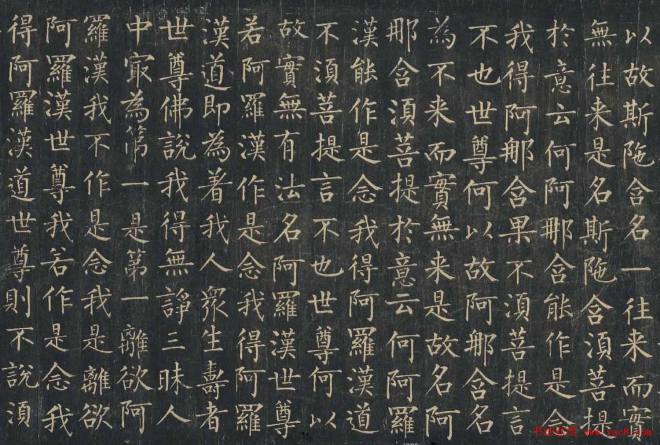 以故斯陁含名一往来而實
無往来是名斯陁含須菩提
於意云何阿那含能作是念
我得阿那含果不須菩提言
不也世尊何以故阿那含名
為不来而實無来是故名阿
那含須菩提於意云何阿羅
漢能作是念我得阿羅漢道
不須菩提言不也世尊何以
故實無有法名阿羅漢世尊
若阿羅漢作是念我得阿羅
漢道即為著我人衆生壽者
世尊佛說我得無諍三昧人
中冣為第一是第一離欲阿
羅漢我不作是念我是離欲
阿羅漢世尊我若作是念我
得阿羅漢道世尊則不說須